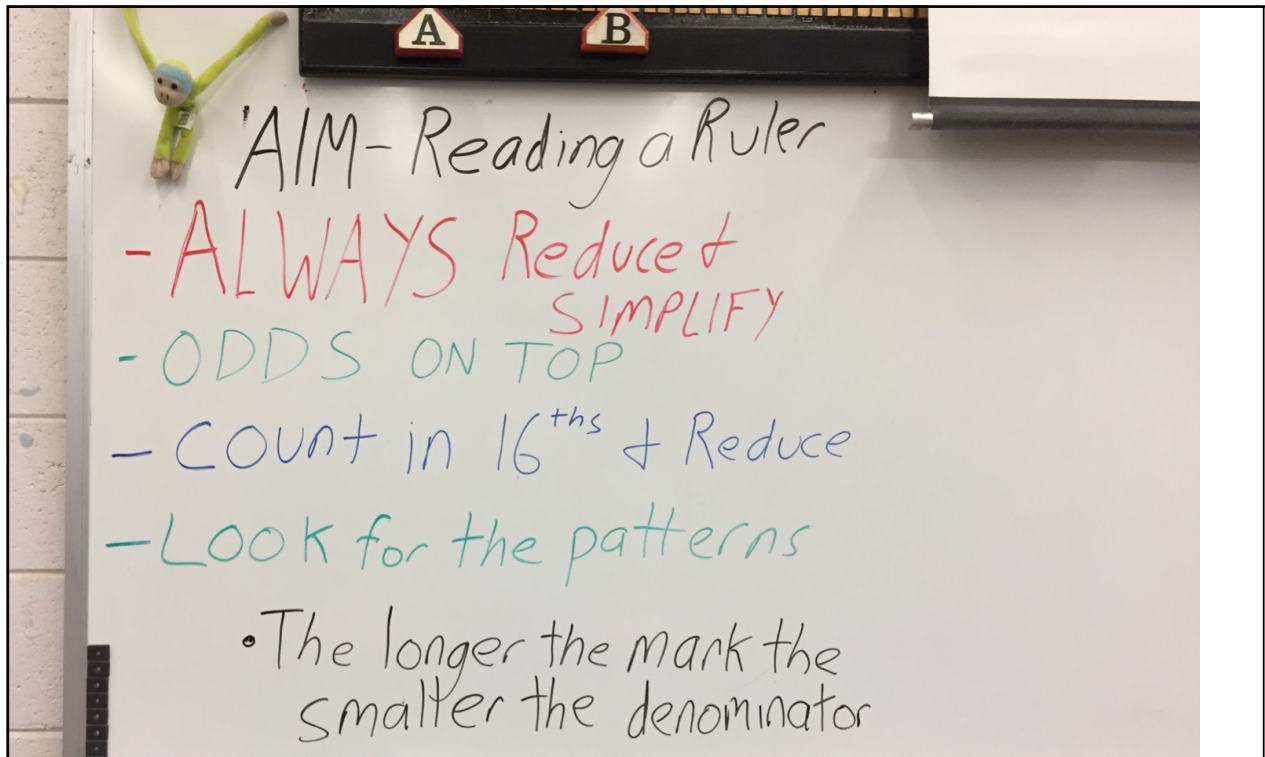 A B
AIM - Reading a Ruler
- ALWAYS Reduce &
SIMPLIFY
- ODDS ON TOP
- COUNT in 16ths & Reduce
- LOOK for the patterns
• The longer the mark the
smaller the denominator